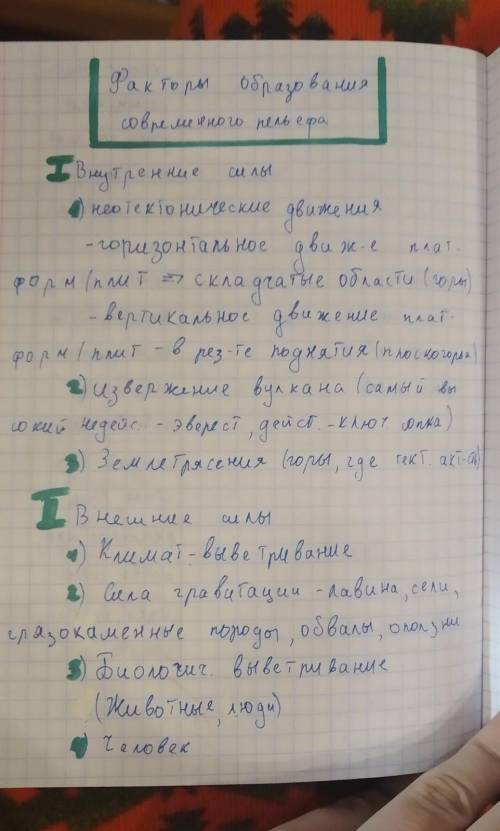 Факторы образования
современного рельефа
I Внутренние силы
1) неотектонические движения
- горизонтальное движ-е плат-
форм/плит => складчатые области (горы)
- вертикальное движение плат-
форм/плит - в рез-те поднятия (плоскогорья)
2) извержение вулкана (самый вы
сокий недейс. - Эверест, дейст. - ключ. сопка)
3) Землетрясения (горы, где тект. акт-ть)
II Внешние силы
1) Климат - выветривание
2) Сила гравитации - лавина, сели,
грязокаменные породы, обвалы, оползни
3) Биологич. выветривание
(Животные, люди)
4) Человек